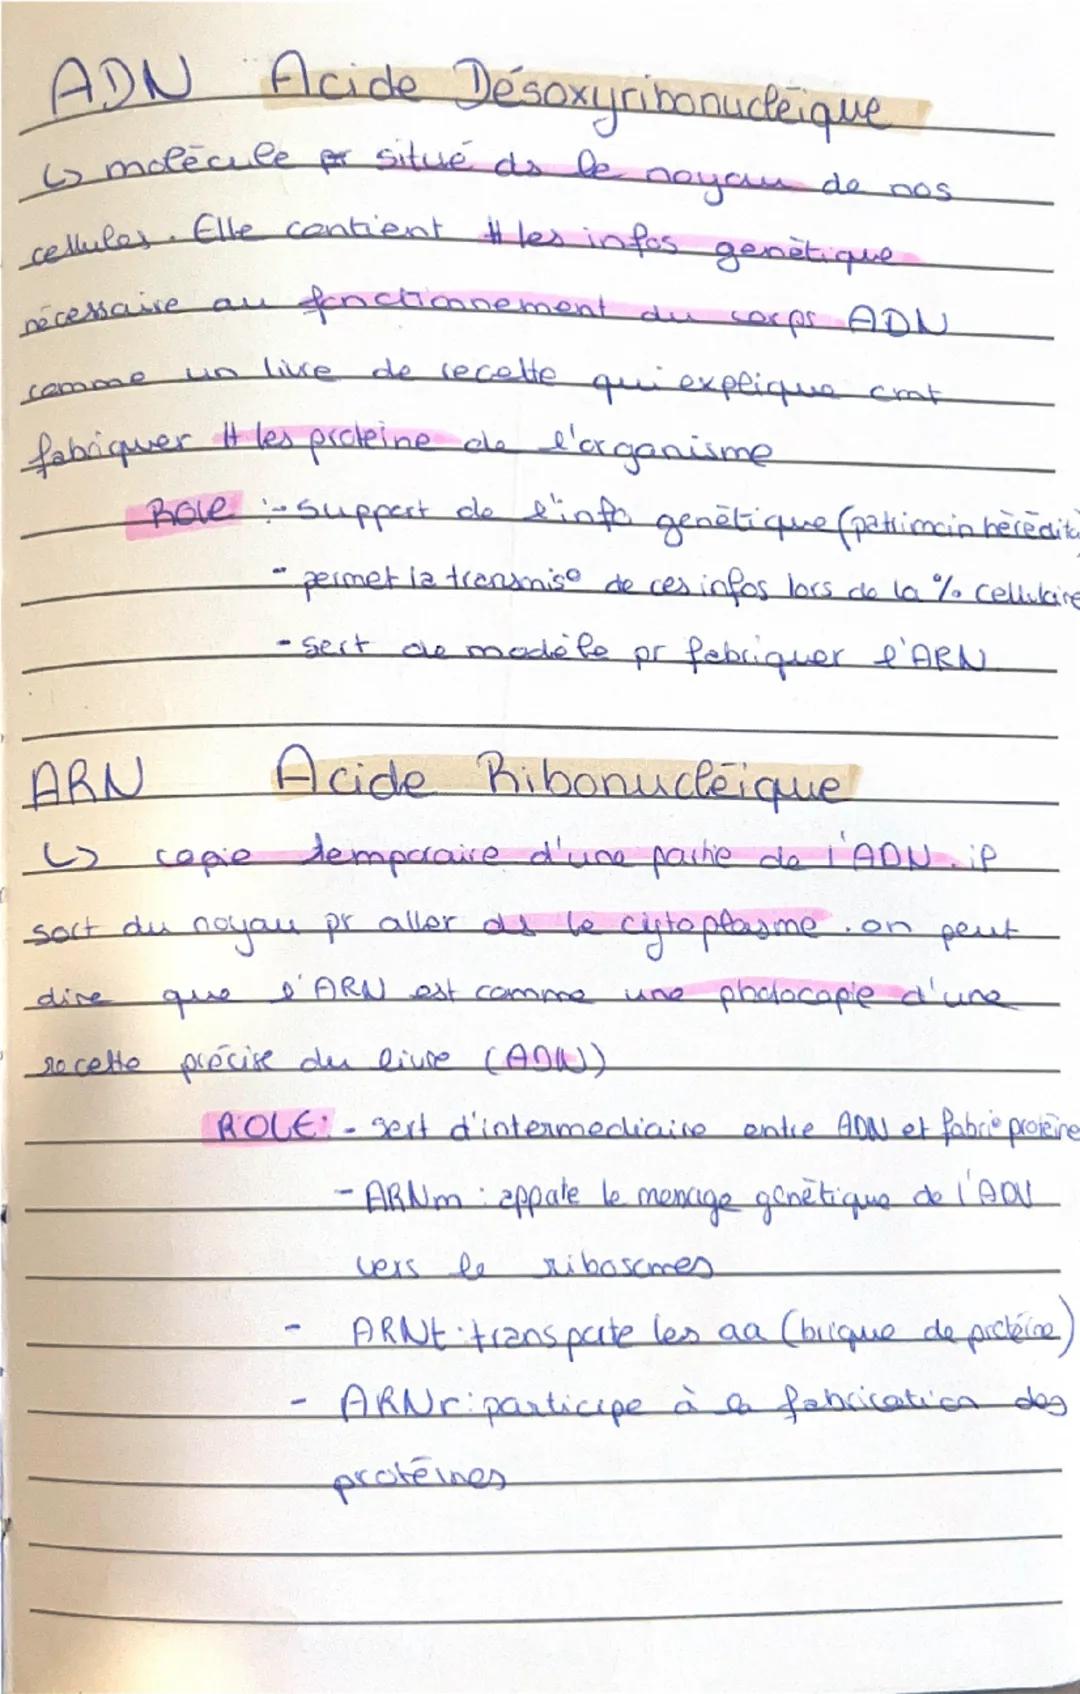 ADN Acide Désoxyribonucléique
↳ molécule situé ds le noyau de nos
cellules. Elle contient # les infos genétique
nécessaire au fonctionnement du corps ADN
comme un livre de recette qui explique cmt
fabriquer # les proteine de l'organisme
Role :- support de l'info genétique (patrimoin hérédita
- permet la transmis° de ces infos lors de la % cellulaire
- sert de modèle pr fabriquer l'ARN
ARN Acide Ribonucléique
↳ copie temporaire d'une partie de l'ADN. il
sort du noyau pr aller ds le cytoplasme. on peut
dire que l'ARN est comme une photocopie d'une
recette précise du livre (ADN)
ROLE: - sert d'intermediaire entre ADN et fabric° proteine
- ARNm : apporte le message génétique de l'ADN
vers le ribosomes
- ARNt : transporte les aa (brique de protéine)
- ARNr : participe à la fabrication des
protéines